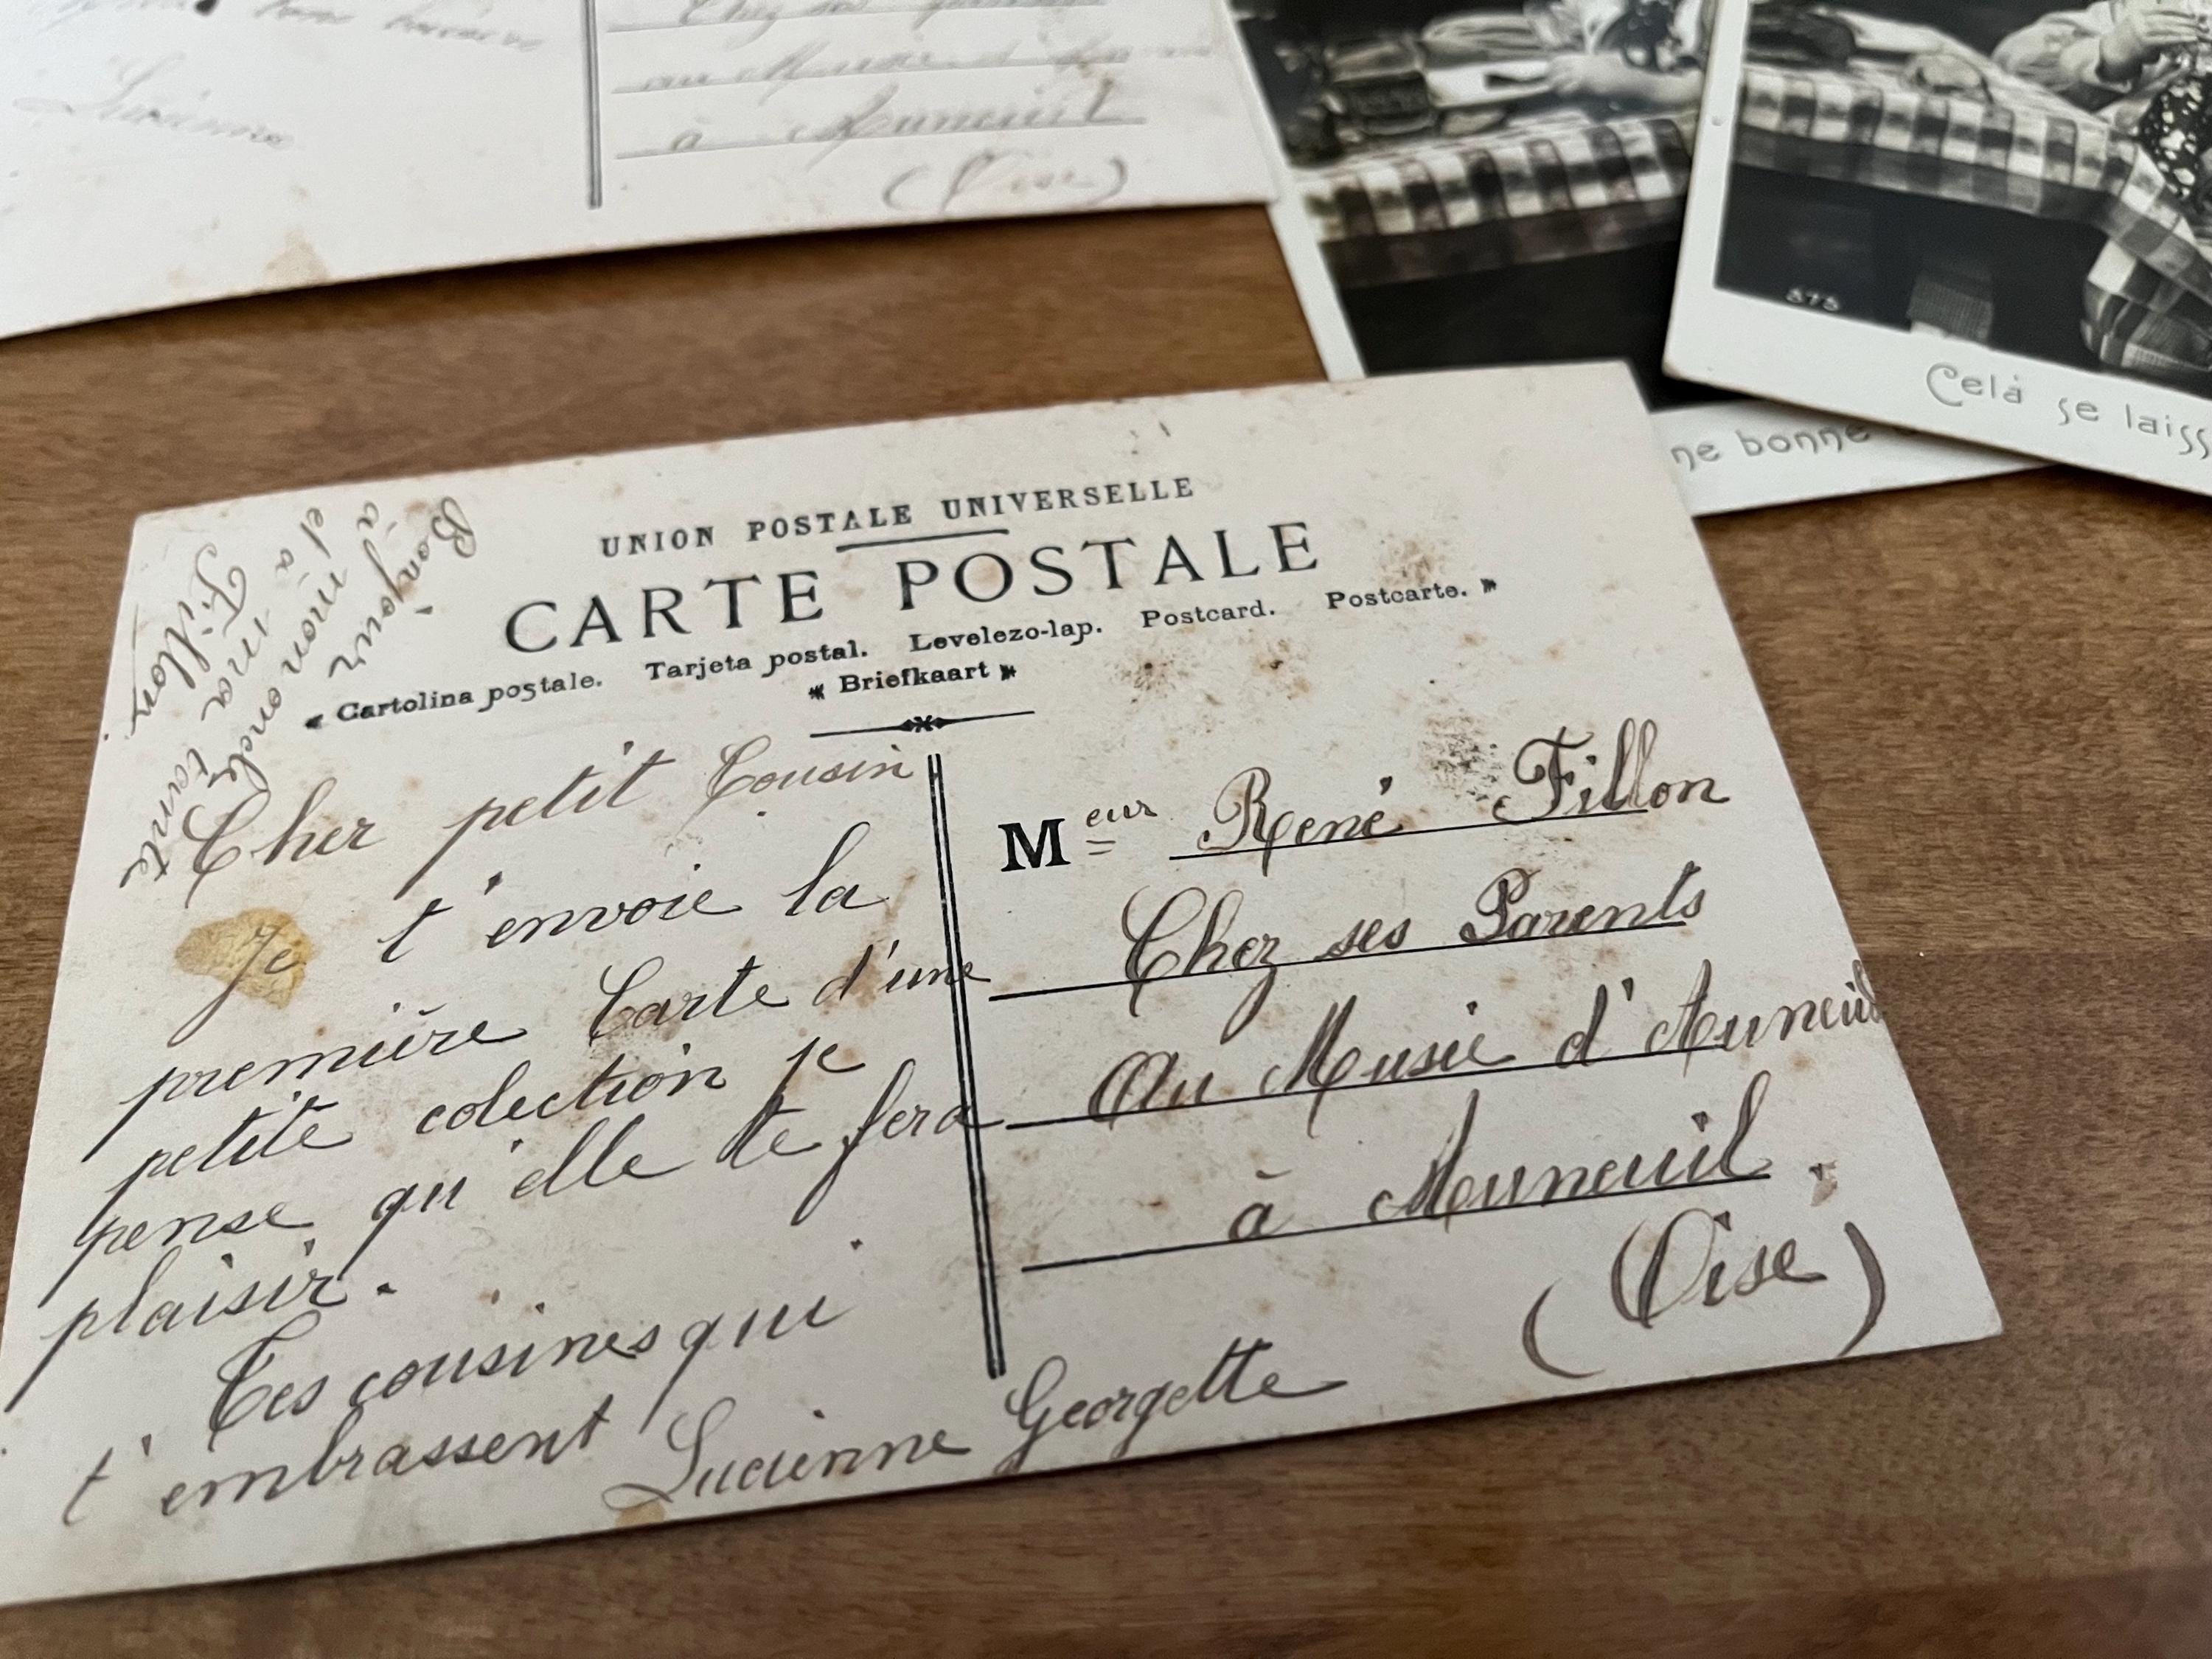 Lucienne
à Auneuil
(Oise)
373
Celà se laiss
ne bonne
UNION POSTALE UNIVERSELLE
CARTE POSTALE
Cartolina postale. Tarjeta postal. Levelezo-lap. Postcard. Postcarte.
Briefkaart
Bonjour
à mon oncle
et à ma tante
Fillon
Cher petit Cousin
Je t'envoie la
première Carte d'une
petite colection je
pense qu'elle te fera
plaisir.
Tes cousines qui
t'embrassent
Lucienne Georgette
Meur René Fillon
Chez ses Parents
Au Musée d'Auneuil
à Auneuil.
(Oise)